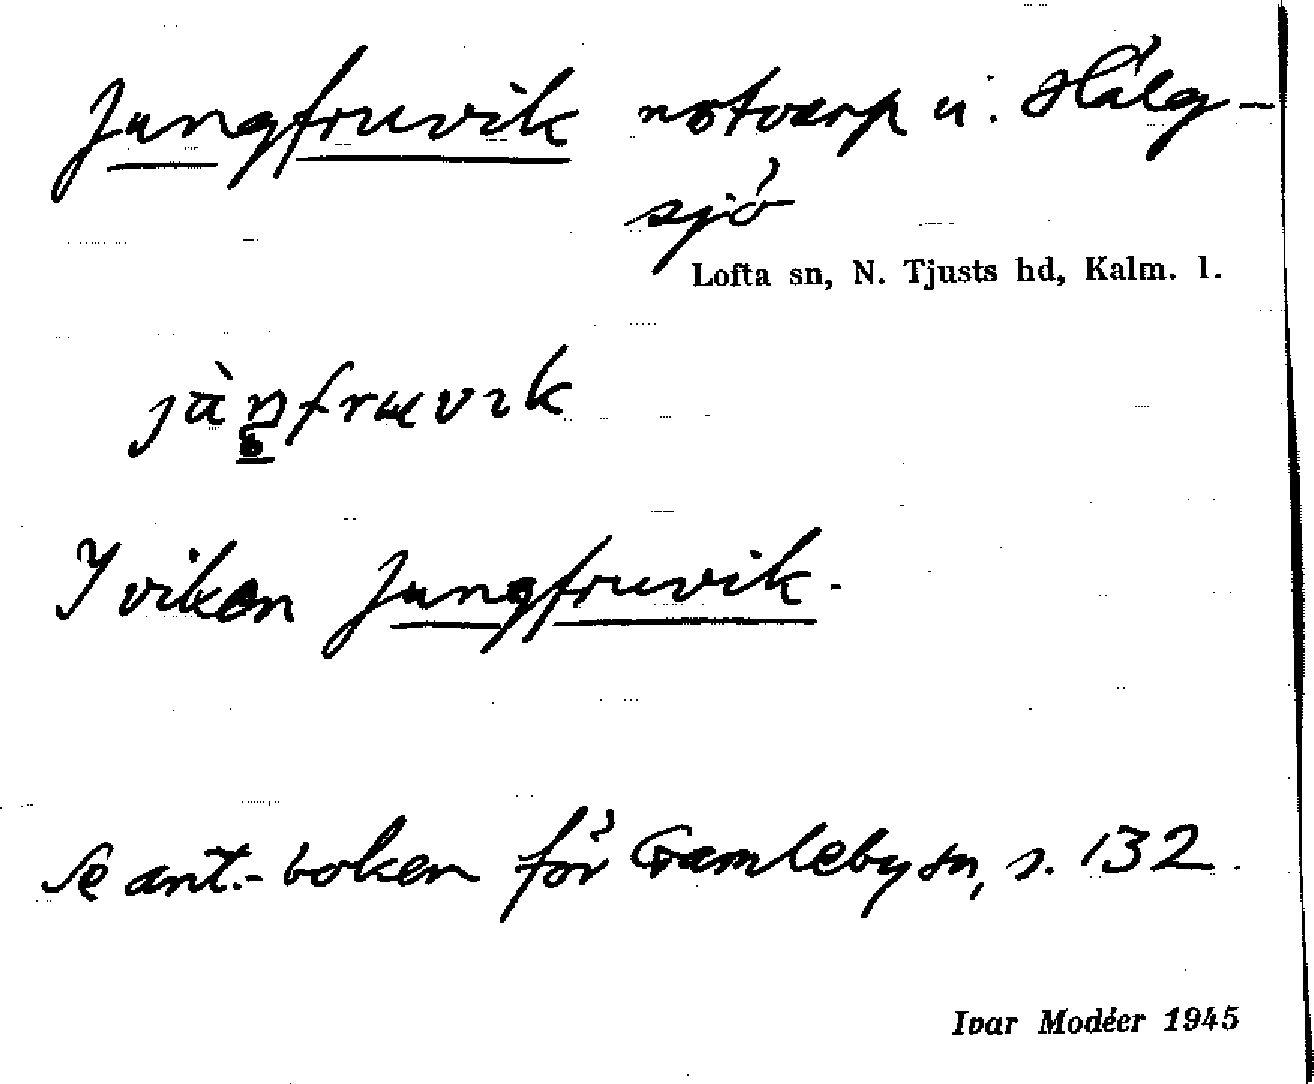 Jungfruvik notvarp u. Hälg-
sjö
Lofta sn, N. Tjusts hd, Kalm. l.
I viken Jungfruvik.
Se ant.-boken för Gamleby sn, s. 132.
Ivar Modéer 1945